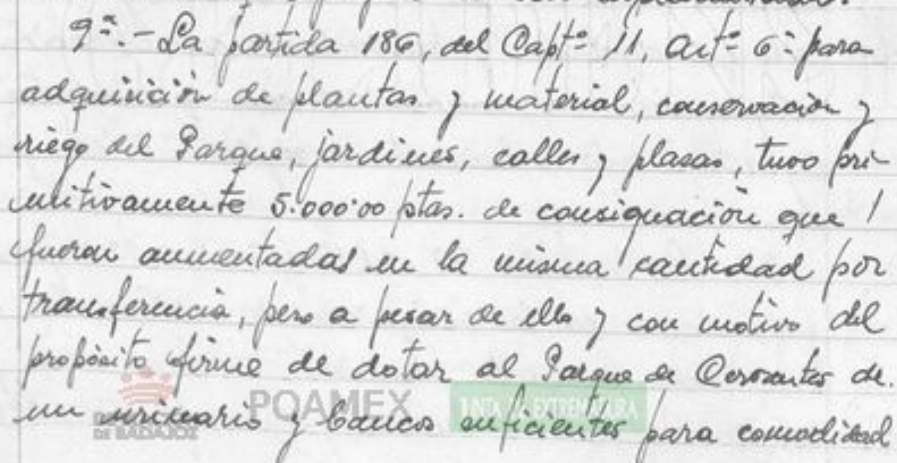 9ª.- La partida 186, del Captº 11, artº 6º para
adquisición de plantas y material, conservación y
riego del Parque, jardines, calles y plasas, tuvo pri-
mitivamente 5.000'00 ptas. de consignación que
fueron aumentadas en la misma cantidad por
transferencia, pero a pesar de ello y con motivo del
propósito firme de dotar al Parque de Cervantes de
un urinario y bancos suficientes para comodidad
DE BADAJOZ
POAMEX
JUNTA DE EXTREMADURA